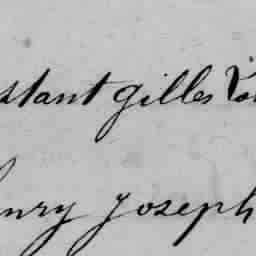 stant gilles
enry Joseph